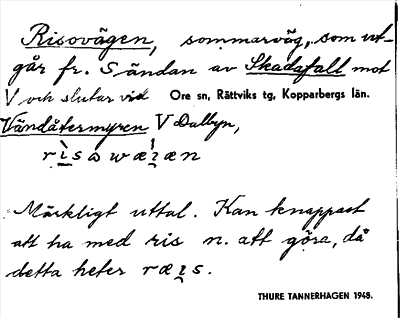 Risovägen, sommarväg, som ut-
går fr. S ändan av Skadafall mot
V och slutar vid Ore sn, Rättviks tg, Kopparbergs län.
Vändåtermyren V Dalbyn,
Märkligt uttal. Kan knappast
att ha med ris n. att göra, då
detta heter ræ̀ı̣s.
THURE TANNERHAGEN 1948.